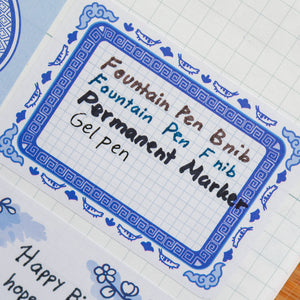 Fountain Pen B nib
Fountain Pen F nib
Permanent Marker
Gel pen
Happy Bi
hope